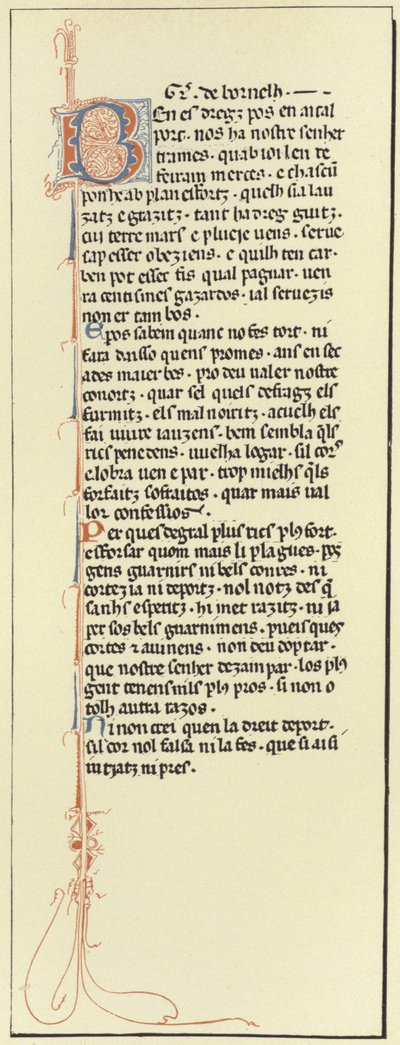 G̅r̅. de bornelh.
Ben es dregz pos en aital
port. nos ha nostre senher
trames. quab ioi len re
feiram merces. e chascun̅
ponhe ab plan esfortz. quelh sia lau
zatz e grazitz. tant ha dreg guitz.
cui terre mars e plueie uens. serue
sap esser obeziens. e quilh ten car.
ben pot esser fis qual pagnar. uen
ra centisimes gazardos. ial seruezis
non er tam bos.
E pos sabem quanc no fes tort. ni
fara daisso quens promes. ans en sec
ades maier bes. pro deu ualer nostre
conortz. quar sel quels defragz els
furmitz. els mal noiritz. acuelh els
fai uiure iauzens. bem sembla q̅ls
rics penedens. uuelha logar. sil cors
elobra uen e par. trop mielhs q̅ls
forfaitz sofraitos. quar mais ual
lor confessios
Per ques degral plus rics plꝰ fort.
esforsar quom mais li plagues. pos
gens guarnirs ni bels conres. ni
cortezia ni deportz. nol notz des q̅
sanhs esperitz. hi met razitz. ni ia
per sos bels guarnimens. pueis ques
cortes ⁊ auinens. non deu doptar.
que nostre senher dezampar. los plꝰ
gent tenens nils plꝰ pros. si non o
tolh autra razos.
Ni non crei quen la dreit deport.
sil cor nol falsa ni la fes. que si ai si
iutjatz ni pres.